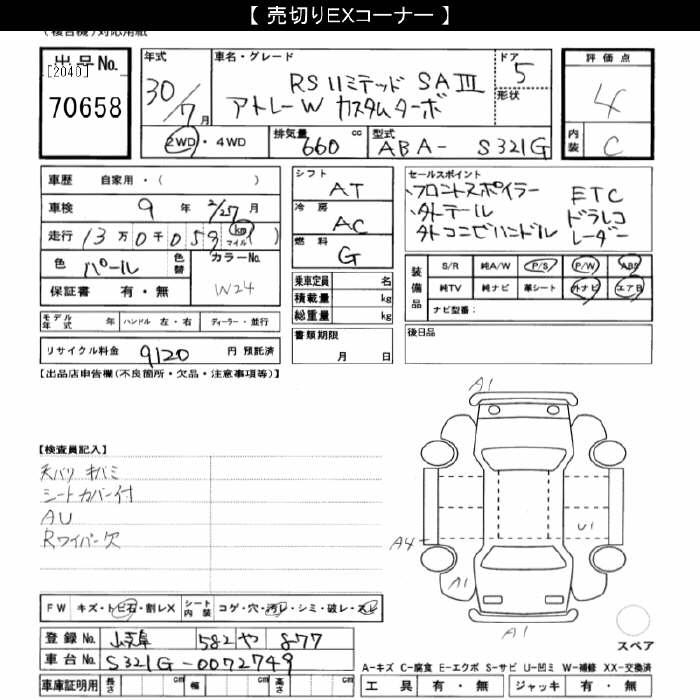 【 売切りEXコーナー 】
(複合機)対応用紙
出品No.
[2040]
70658
年式
30/7月
車名・グレード
RSリミテッド SAⅢ
アトレーW カスタムターボ
ドア
5
形状
評価点
4
内装
C
2WD・4WD
排気量
660 cc
型式
ABA- S321G
車歴 自家用・( )
車検 9 年 2/27 月
走行 13万0千059 (km マイル)
色 パール 色替 カラーNo.
W24
保証書 有・無
シフト
AT
冷房
AC
燃料
G
乗車定員 名
積載量 kg
総重量 kg
セールスポイント
フロントスポイラー ETC
外テール ドラレコ
外コンビハンドル レーダー
装備品
S/R 純A/W P/S P/W ABS
純TV 純ナビ 革シート 外ナビ エアB
ナビ型番:
モデル年式 年 ハンドル 左・右 ディーラー・並行
リサイクル料金 9120 円 預託済
書類期限
月 日
後日品
【出品店申告欄(不良箇所・欠品・注意事項等)】
【検査員記入】
天バリ キバミ
シートカバー付
AU
Rワイパー欠
A1
U1
A4
A1
A1
スペア
FW キズ・トビ石・割レX シート内装 コゲ・穴・汚レ・シミ・破レ・スレ
登録No. 582 や 877
車台No. S321G-0072749
車庫証明用 長さ cm 幅 cm 高さ cm
A-キズ C-腐食 E-エクボ S-サビ U-凹ミ W-補修 XX-交換済
工具 有・無 ジャッキ 有・無